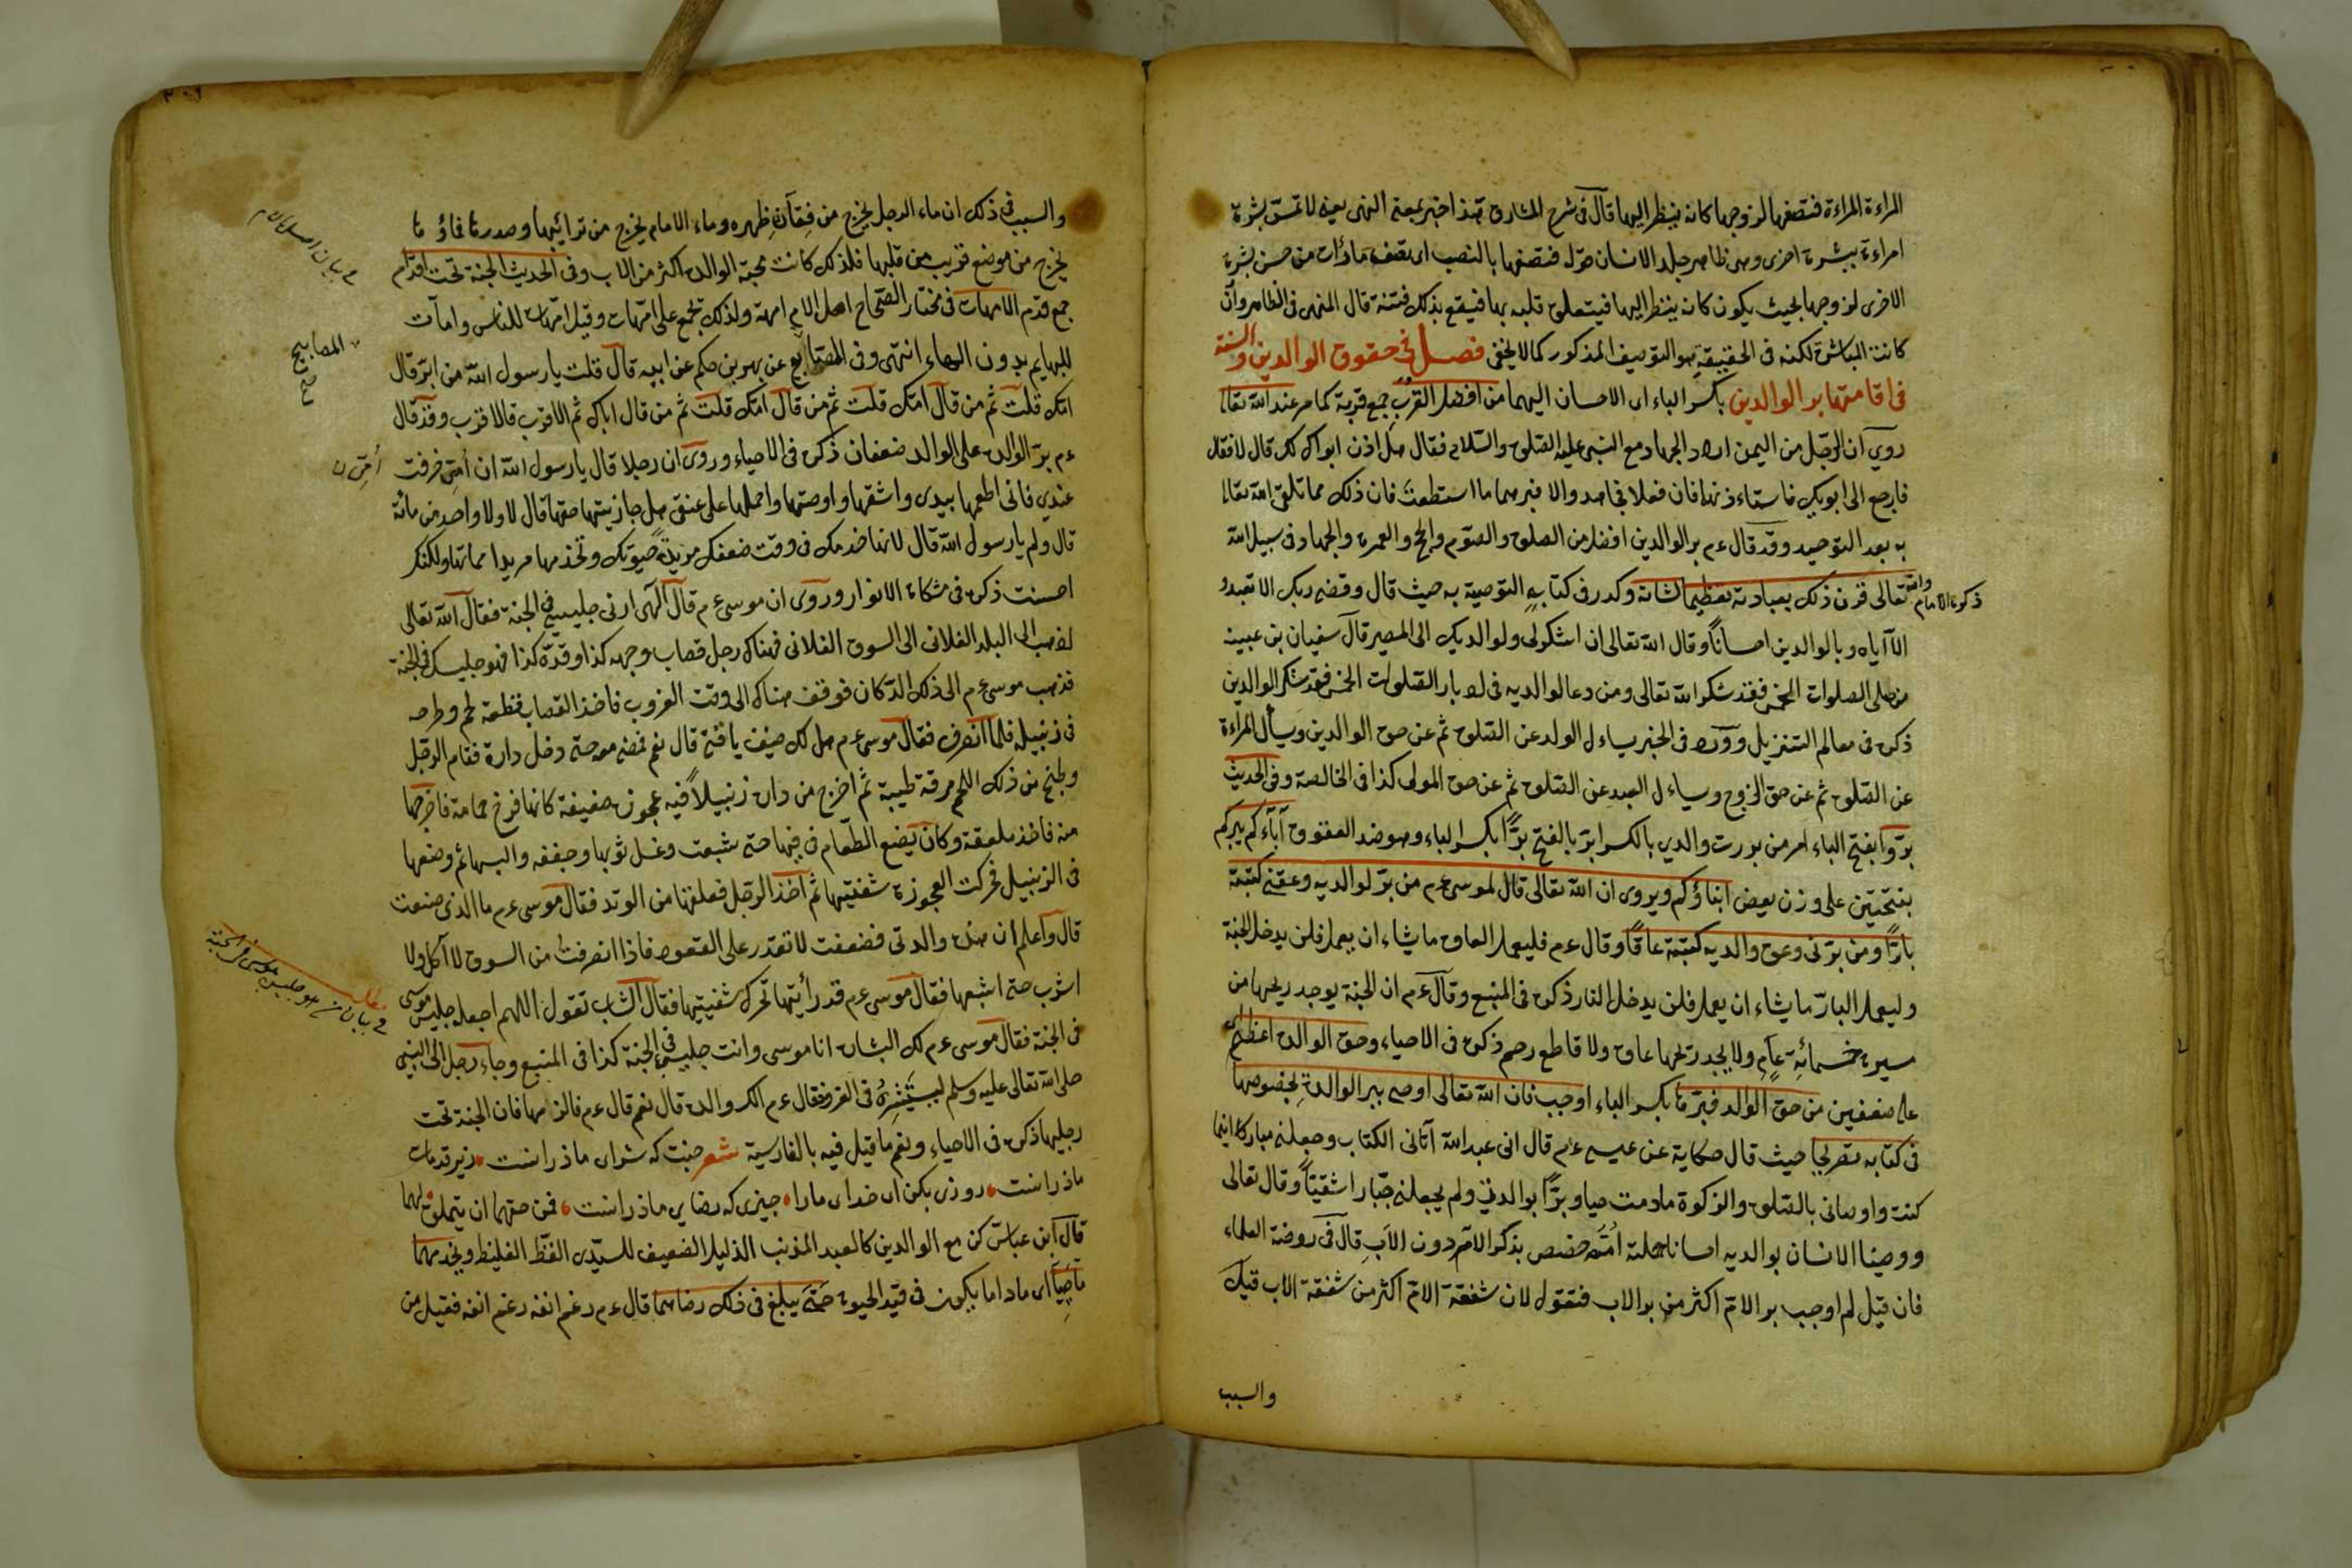 المراءة المراءة فتصفها لزوجها كانه ينظر اليها قال فى شرح المشارق هذا خبر بمعنى النهى يعنى لا تمس بشرة
امراءة ببشرة اخرى وهى ظاهر جلد الانسان قوله فتصفها بالنصب اى تصف ما رأت من حسن بشرة
الاخرى لزوجها بحيث يكون كانه ينظر اليها فيتعلق قلبه بها فيقع بذلك فتنة قال المنهى فى الظاهر وان
كانت المباشرة لكنه فى الحقيقة هو التوصيف المذكور كما لا يخفى فصل فى حقوق الوالدين والسنة
فى اقامتها بر الوالدين بكسر الباء اى الاحسان اليهما من افضل القرب جمع قربة كما مر عند الله تعالى
روى ان الرجل من اليمن اراد الجهاد مع النبى عليه الصلوة والسلام فقال هل اذن ابواك لك قال لا فقال
فارجع الى ابويك فاستاءذنهما فان فعلا فجاهد والا فبرهما ما استطعت فان ذلك مما تلقى الله تعالى
به بعد التوحيد وقد قال ءم بر الوالدين افضل من الصلوة والصوم والحج والعمرة والجهاد فى سبيل الله
ذكره الامام والله تعالى قرن ذلك بعبادته تعظيما لشانه وكرر فى كتابه التوصية به حيث قال وقضى ربك الا تعبدوا
الا اياه وبالوالدين احسانا وقال الله تعالى ان اشكر لى ولوالديك الى المصير قال سفيان بن عيينه
من صلى الصلوات الخمس فقد شكر الله تعالى ومن دعا لوالديه فى ادبار الصلوات الخمس فقد شكر الوالدين
ذكره فى معالم التنزيل وورد فى الخبر يساءل الولد عن الصلوة ثم عن حق الوالدين ويسأل المراءة
عن الصلوة ثم عن حق الزوج ويساءل العبد عن الصلوة ثم عن حق المولى كذا فى الخالصة وفى الحديث
بروا بفتح الباء امر من بررت والدى بالكسر ابر بالفتح برا بكسر الباء وهو ضد العقوق آباءكم يبركم
بفتحتين على وزن يعض ابناؤكم ويروى ان الله تعالى قال لموسى ءم من بر لوالديه وعقنى كتبته
بارا ومن برنى وعق والديه كتبته عاقا وقال ءم فليعمل العاق ما يشاء ان يعمل فلن يدخل الجنة
وليعمل البار ما يشاء ان يعمل فلن يدخل النار ذكره فى المنبع وقال ءم ان الجنة يوجد ريحها من
مسيرة خمسمائة عام ولا يجد ريحها عاق ولا قاطع رحم ذكره فى الاحياء وحق الوالدة اعظم
على ضعفين من حق الوالد فبرها بكسر الباء اوجب فان الله تعالى اوصى ببر الوالدة بخصوصها
فى كتابه تصريحا حيث قال حكاية عن عيسى ءم قال انى عبد الله آتانى الكتاب وجعلنى مباركا اينما
كنت واوصانى بالصلوة والزكوة ما دمت حيا وبرا بوالدتى ولم يجعلنى جبارا شقيا وقال تعالى
ووصينا الانسان بوالديه احسانا حملته امه خصص بذكر الام دون الاب قال فى روضة العلماء
فان قيل لم اوجب بر الام اكثر من بر الاب فنقول لان شفقة الام اكثر من شفقة الاب قيل
والسبب
والسبب فى ذلك ان ماء الرجل يخرج من فقان ظهره وماء الام يخرج من ترائيبها وصدرها فماؤها
يخرج من موضع قريب من قلبها فلذلك كانت محبة الوالدة اكثر من الاب وفى الحديث الجنة تحت اقدام
جمع قدم الامهات فى مختار الصحاح اصل الام امهة ولذلك تجمع على امهات وقيل امهات للناس وامات
للبهايم بدون الهاء انتهى وفى المصابيح عن بهر بن حكم عن ابيه قال قلت يا رسول الله من ابر قال
امك قلت ثم من قال امك قلت ثم من قال امك قلت ثم من قال اباك ثم الاقرب فالاقرب وقد قال
ءم بر الوالدة على الوالد ضعفان ذكره فى الاحياء وروى ان رجلا قال يا رسول الله ان امى خرفت
عندى فانى اطعمها بيدى واسقيها واوضئها واحملها على عنقى هل جازيتها حقها قال لا ولا واحد من مائة
قال ولم يا رسول الله قال لانها خدمك فى وقت ضعفك مريدة حيوتك وتخدمها مريدا مماتها ولكنك
احسنت ذكره فى مشكاة الانوار وروى ان موسى ءم قال الهى ارنى جليسى فى الجنة فقال الله تعالى
اذهب الى البلد الفلانى الى السوق الفلانى فهناك رجل قصاب وجهه كذا وقده كذا فهو جليسك فى الجنة
فذهب موسى ءم الى ذلك الدكان فوقف هناك الى وقت الغروب فاخذ القصاب قطعة لحم وطرحه
فى زنبيله فلما انصرف فقال موسى ءم هل لك ضيف يا فتى قال نعم فمضى معه حتى دخل داره فقام الرجل
وطبخ من ذلك اللحم مرقة طيبة ثم اخرج من داره زنبيلا فيه عجوزة ضعيفة كانها فرخ حمامة فاخرجها
منه فاخذ ملعقة وكان يضع الطعام فى فيها حتى شبعت وغسل ثوبها وجففه والبسها ثم وضعها
فى الزنبيل فحركت العجوزة شفتيها ثم اخذ الرجل فعلقها من الوتد فقال موسى ءم ما الذى صنعت
قال اعلم ان هذه والدتى فضعفت لا تقدر على القعود فاذا انصرفت من السوق لا آكل ولا
اشرب حتى اشبعها فقال موسى ءم قد رأيتها تحرك شفتيها فقال الشاب تقول اللهم اجعله جليس موسى
فى الجنة فقال موسى ءم لك البشارة انا موسى وانت جليسى فى الجنة كذا فى المنبع وجاء رجل الى النبى
صلى الله تعالى عليه وسلم ليستشيره فى الغزو فقال ءم الك والدة قال نعم قال ءم فالزمها فان الجنة تحت
رجليها ذكره فى الاحياء ونعم ما قيل فيه بالفارسية شعر جنت كه سراى ماذر انست زير قدمات
ماذر انست روزى بكن اى خداى مارا جيزى كه رضاى ماذر انست فمن حقهما ان يتملق لهما
قال ابن عباس كن مع الوالدين كالعبد المذنب الذليل الضعيف للسيدى الفظ الغليظ ويخدمهما
ما حييا اى ما داما يكون فى قيد الحيوة حتى يبلغ فى ذلك رضاهما قال ءم رغم انفه رغم انفه فقيل من
المصابيح